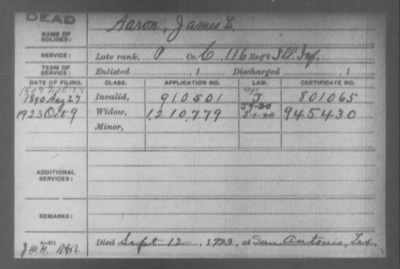 DEAD
NAME OF SOLDIER: Aaron, James L.
SERVICE: Late rank, P Co. C, 116 Reg't Ill. Inf.
TERM OF SERVICE: Enlisted , 1 Discharged , 1
DATE OF FILING. CLASS. APPLICATION NO. CERTIFICATE NO.
1890 Aug 27. Invalid, 910.501 J 801065
1923 Oct 9 Widow, 1210.779 945430
Minor,
ADDITIONAL SERVICES:
REMARKS:
Died Sept 12, 1923, at San Antonio, Tex.